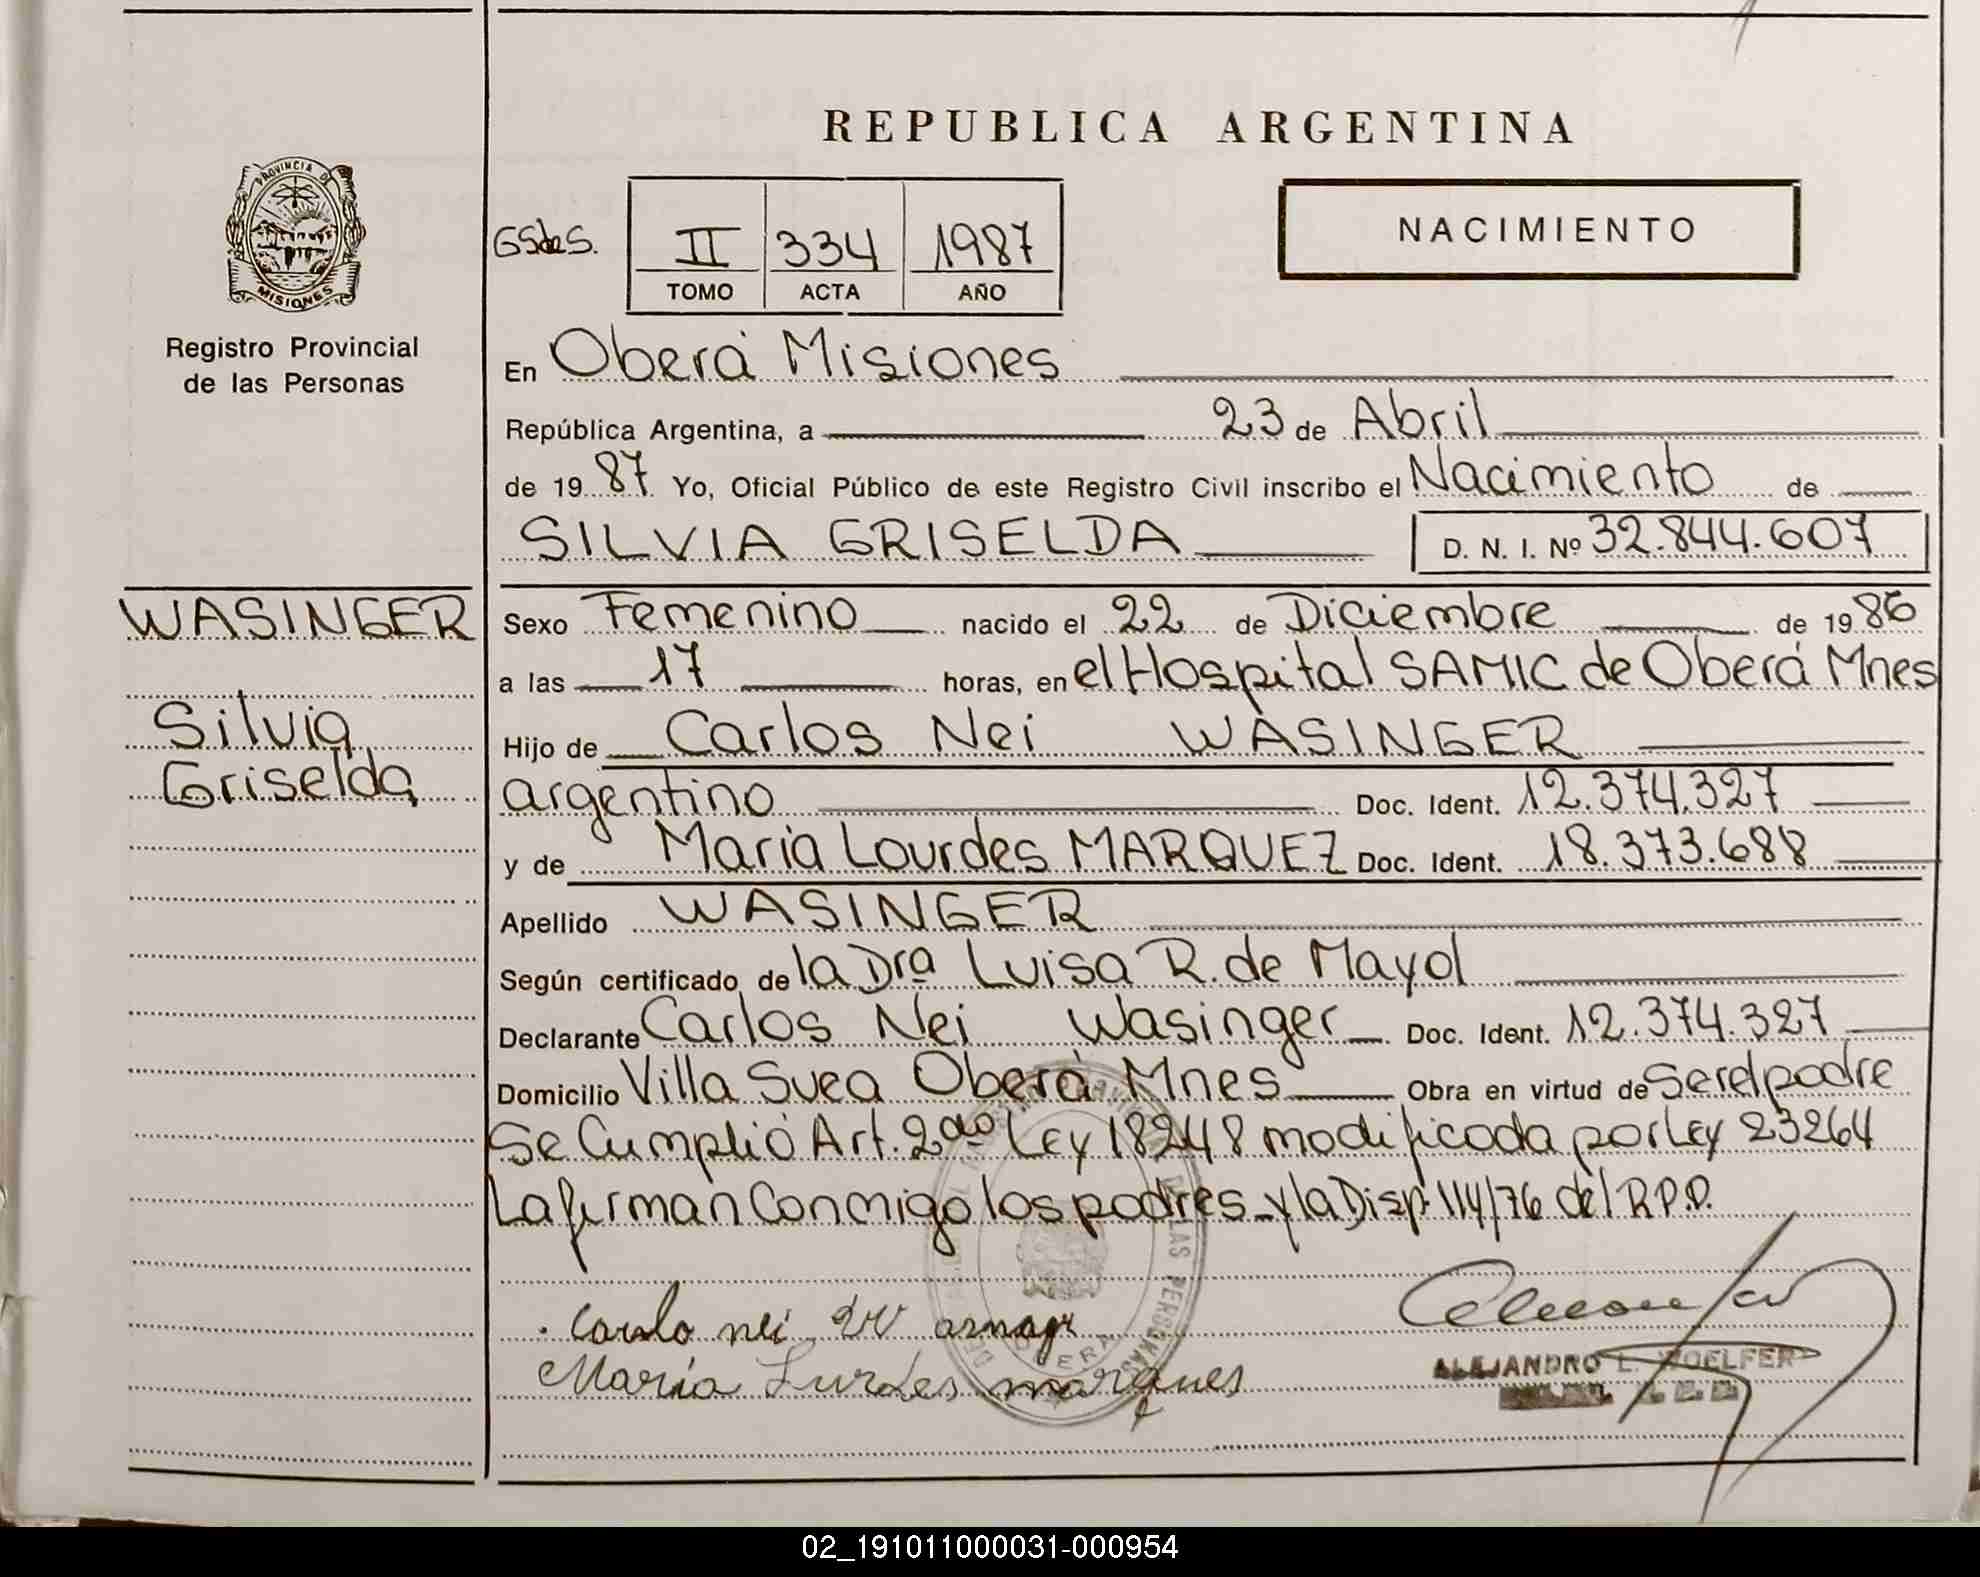 REPUBLICA ARGENTINA
PROVINCIA DE
MISIONES
Registro Provincial
de las Personas
NACIMIENTO
II 334 1987
TOMO ACTA AÑO
En Oberá Misiones
República Argentina, a 23 de Abril
de 1987. Yo, Oficial Público de este Registro Civil inscribo el Nacimiento de
SILVIA GRISELDA D. N. I. Nº 32.844.607
WASINGER
Silvia
Griselda
Sexo Femenino nacido el 22 de Diciembre de 1986
a las 17 horas, en el Hospital SAMIC de Oberá Mnes
Hijo de Carlos Nei WASINGER
argentino Doc. Ident. 12.374.327
y de Maria Lourdes MARQUEZ Doc. Ident. 18.373.688
Apellido WASINGER
Según certificado de la Dra Luisa R. de Mayol
Declarante Carlos Nei Wasinger Doc. Ident. 12.374.327
Domicilio Villa Svea Oberá Mnes Obra en virtud de ser el padre
Se Cumplió Art. 2do Ley 18248 modificada por Ley 23264
La firman Conmigo los padres y la Disp. 114/76 del R.P.P.
Carlo nei
María Lurdes marques
ALEJANDRO L. WOELFER
02_191011000031-000954